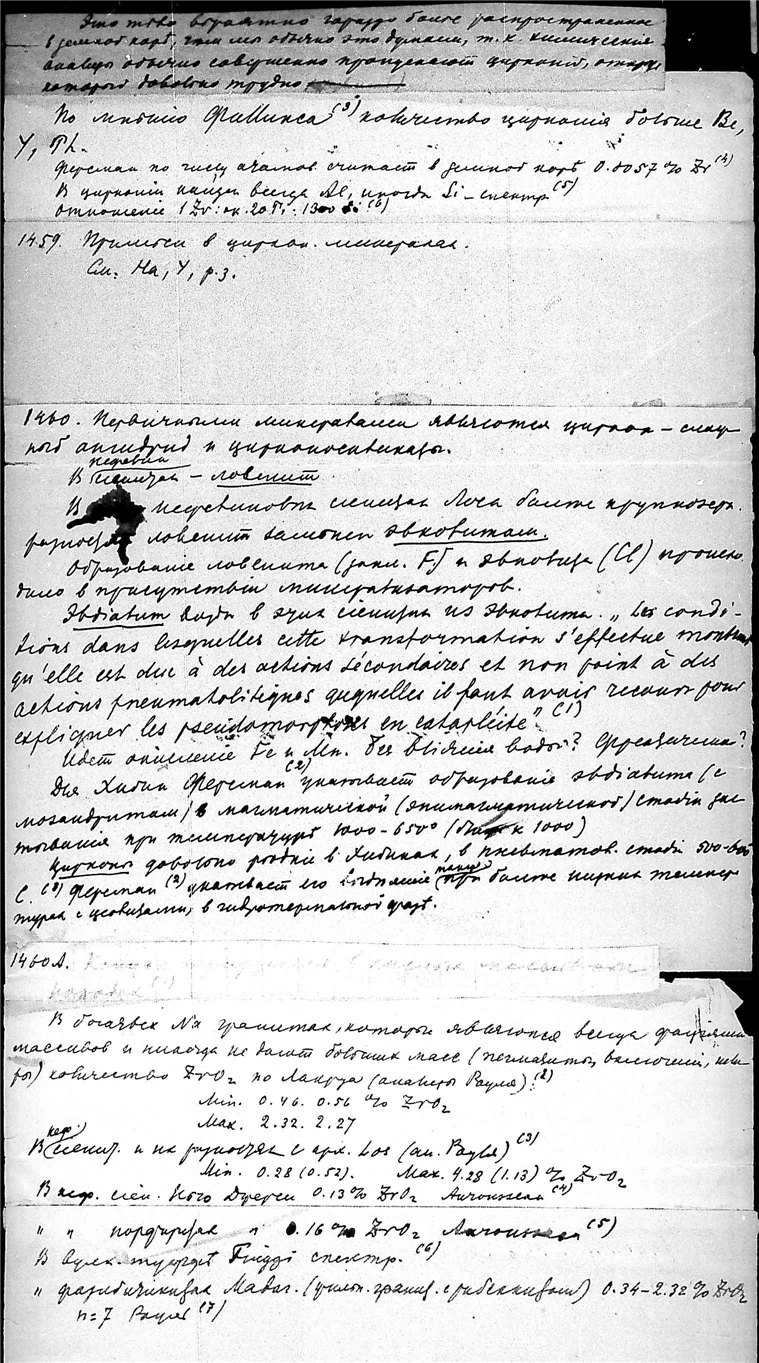 Это тѣло вѣроятно гораздо болѣе распространенное
в земной корѣ, чем мы обычно это думаем, т. к. химическіе
анализы обычно совершенно пропускают цирконій,
который довольно трудно
По мнѣнію Филлипса (3) количество циркона больше Be,
Y, Th.
Ферсман по числу атомов считает в земной корѣ 0.0057 % Zr (4)
В цирконіи найден всегда Al, иногда Si – спектр (5)
отношеніе 1 Zr : ок. 20 Ti : 1300 Si (6)
1459. Примеси в циркон. минералах.
См. На, Y, р. з.
1460. Первичными минералами являются циркон –
ный ангидрид и цирконосиликаты.
В нефелин. сіенитах – ловенит
В нефелиновых сіенитах Лоса болѣе крупнозерн.
разностях ловенит заменен эвколитом.
Образованіе ловенита (закл. F) и эвколита (Cl) происхо-
дило в присутствіи минерализаторов.
Эвдіалит в этих сіенитах из эвколита. „Les condi-
tions dans lesquelles cette transformation s'effectue montrent
qu'elle est due à des actions sécondaires et non point à des
actions pneumatolitiques auquelles il faut avoir recours pour
expliquer les pseudomorphoses en catapléite" (1)
Идет окисленіе Fe и Mn. Без вліянія воды?
Для Хибин Ферсман (2) указывает образованіе эвдіалита (с
мозандритом) в магматической (эпимагматической) стадіи зас-
тыванія при температурѣ 1000–650° ( к 1000)
Цирконы довольно рѣдкіе в Хибинах, в пневматов. стадіи
C. (3) Ферсман (2) указывает его выдѣленіе также при болѣе низких темпера-
турах с цеолитами, в гидротермальной фазѣ.
1460А.
породах (1)
В богатых Na гранитах, которые являются всегда фаціями
массивов и никогда не дают больших масс (пегматиты, включенія,
) количество ZrO₂ по Лакруа (анализы Рауля): (2)
Min. 0.46. 0.56 % ZrO₂
Max. 2.32. 2.27
В неф. сіенит. и их разностях с арх. Los (ан. Рауля) (3)
Min. 0.28 (0.52). Max. 4.28 (1.13) % ZrO₂
В неф. сіен. Нью Джерси 0.13 % ZrO₂ (4)
„ „ порфирах „ 0.16 % ZrO₂ (5)
В вулк. спектр. (6)
„ Мадаг. (щелоч. гранит. с рибекитом) 0.34–2.32 % ZrO₂
n=7 Рауль (7)